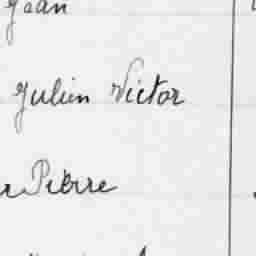 Jean
Julien Victor
Pierre